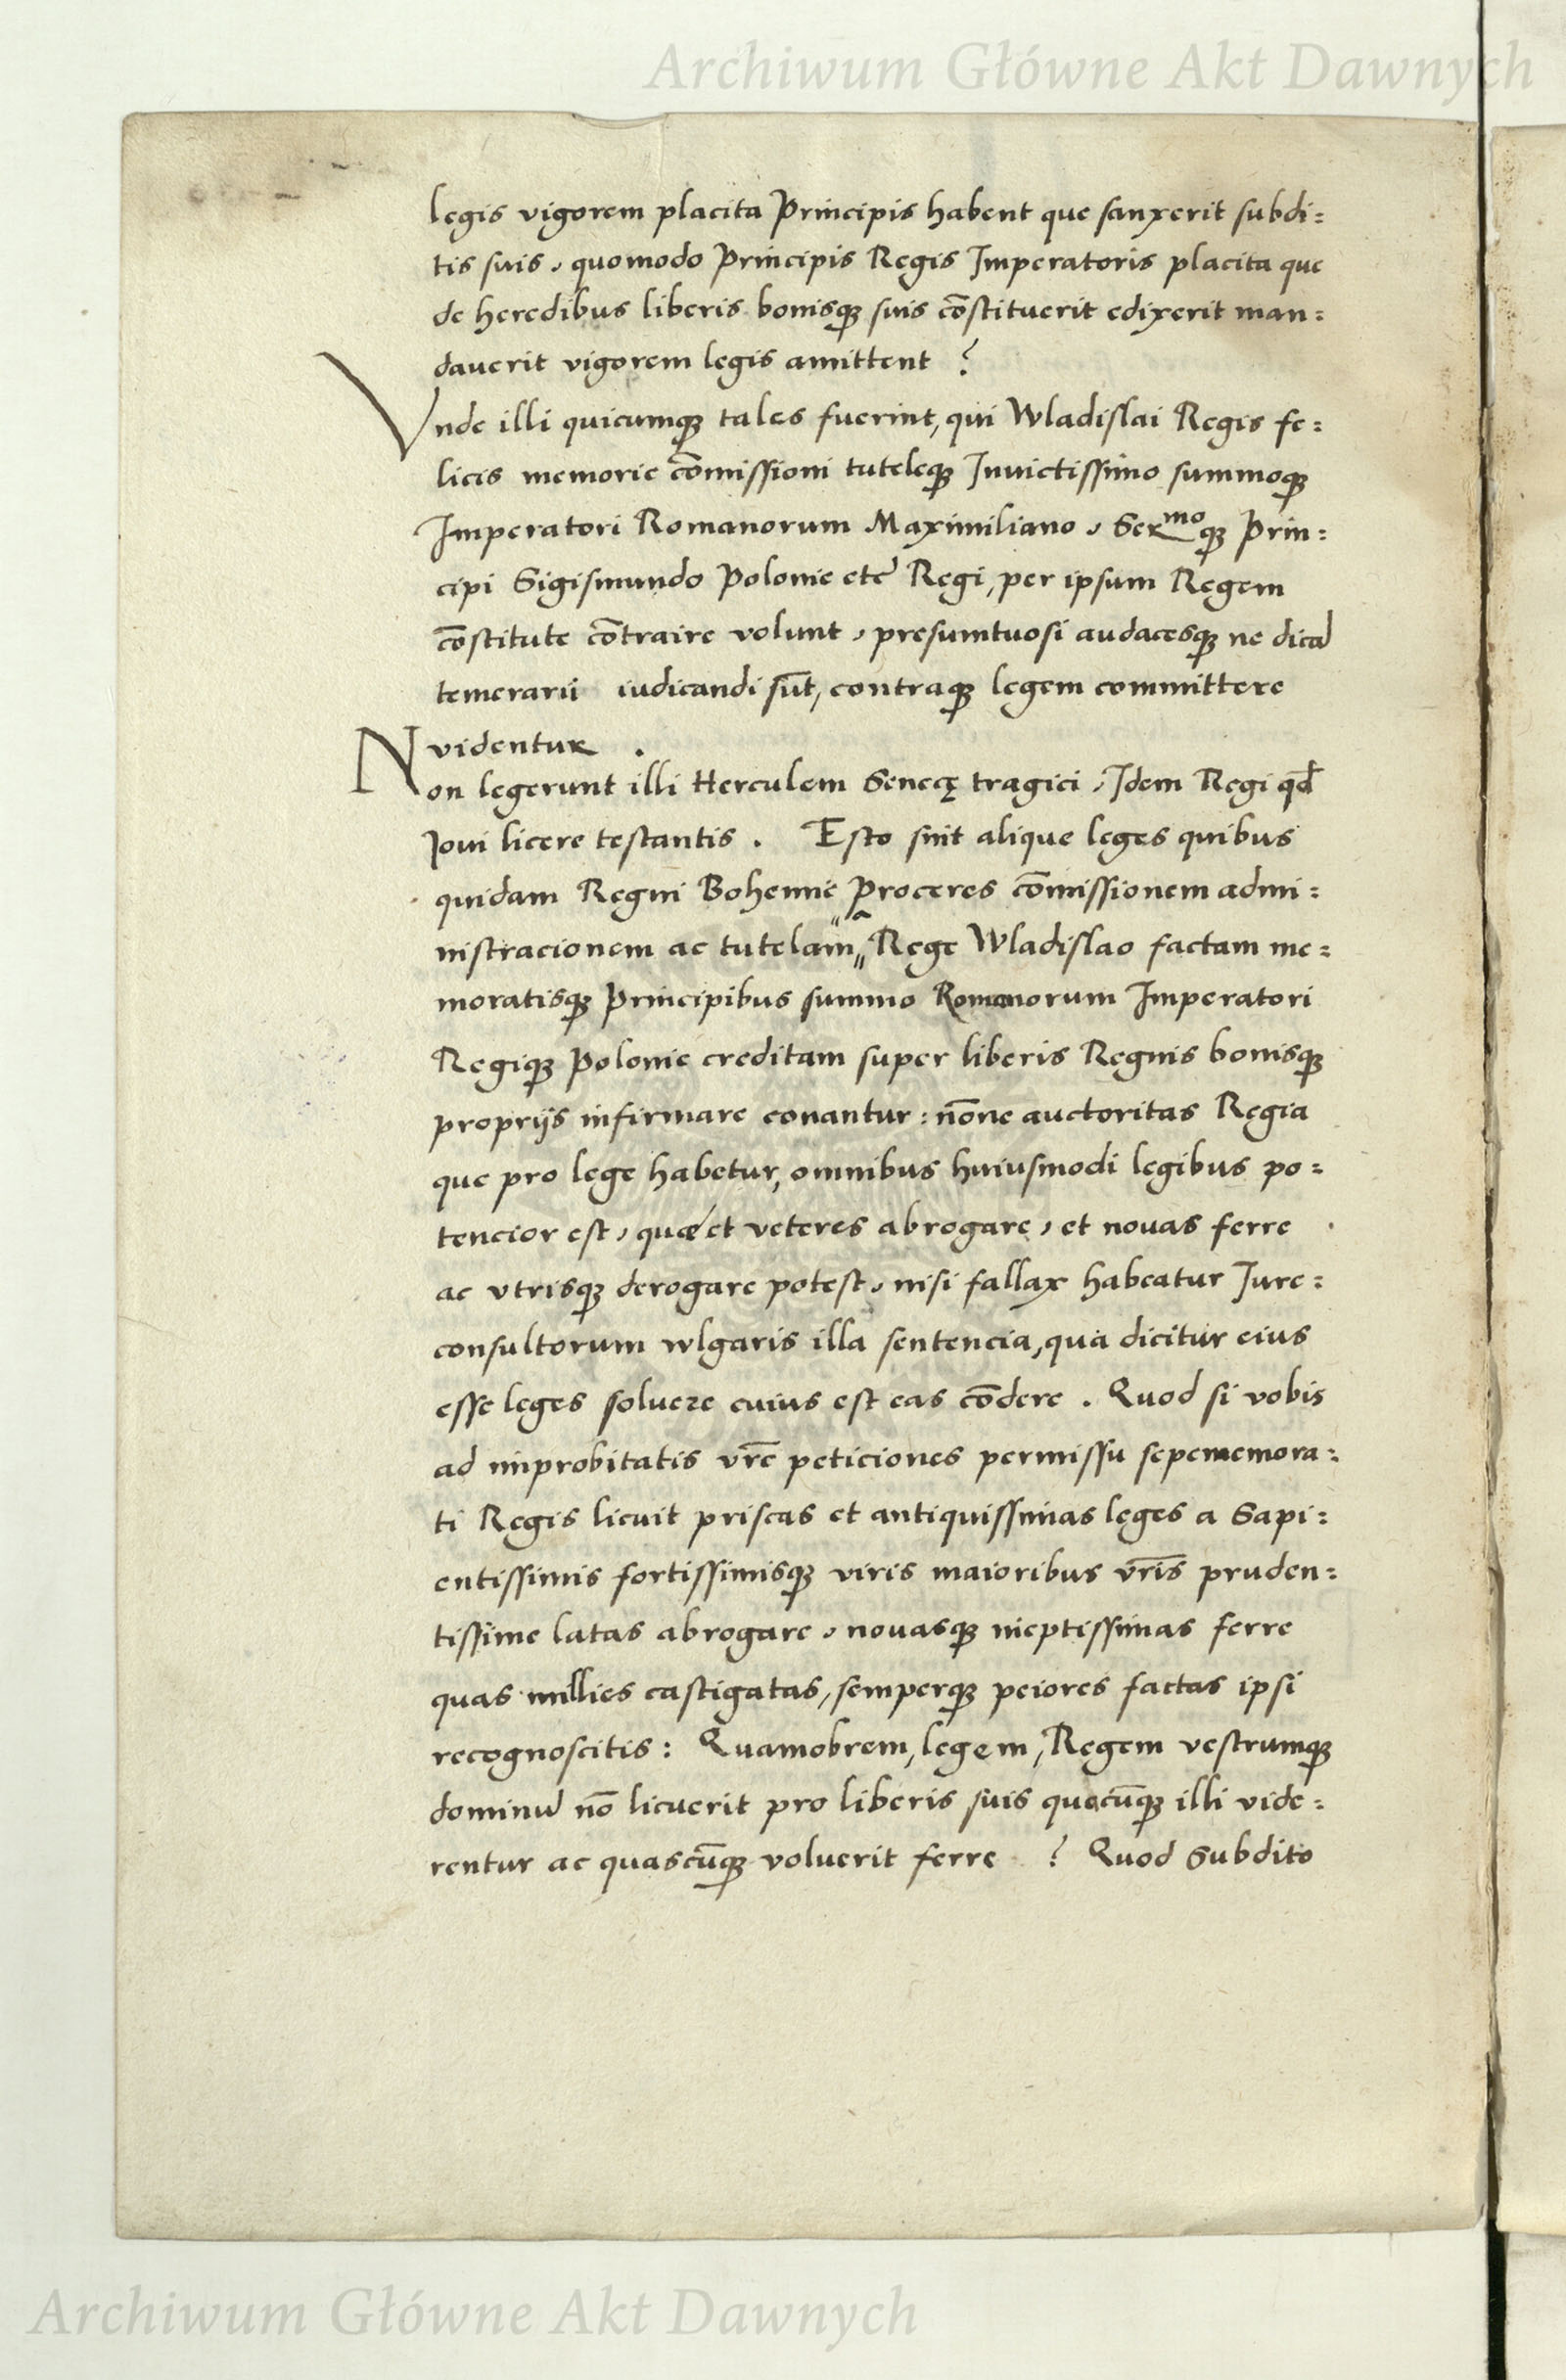 Archiwum Główne Akt Dawnych
legis vigorem placita Principis habent que sanxerit subdi=
tis suis, quomodo Principis Regis Imperatoris placita que
de heredibus liberis bonisqꝫ suis cōstituerit edixerit man=
dauerit vigorem legis amittent ?
Vnde illi quicumqꝫ tales fuerint, qui Wladislai Regis fe=
licis memorie cōmissioni tuteleqꝫ Inuictissimo summoqꝫ
Imperatori Romanorum Maximiliano, Serᵐᵒqꝫ Prin=
cipi Sigismundo Polonie etc̃ Regi, per ipsum Regem
cōstitute cōtraire volunt, presumtuosi audacesqꝫ ne dicā
temerarii iudicandi sūt, contraqꝫ legem committere
videntur .
Non legerunt illi Herculem Senecę tragici, Idem Regi qđ
Ioui licere testantis . Esto sint alique leges quibus
quidam Regni Bohemie Proceres cōmissionem admi=
nistracionem ac tutelam a Rege Wladislao factam me=
moratisqꝫ Principibus summo Romanorum Imperatori
Regiqꝫ Polonie creditam super liberis Regnis bonisqꝫ
proprijs infirmare conantur : nōne auctoritas Regia
que pro lege habetur, omnibus huiusmodi legibus po=
tencior est, quæ et veteres abrogare, et nouas ferre
ac vtrisqꝫ derogare potest, nisi fallax habeatur Iure=
consultorum wlgaris illa sentencia, qua dicitur eius
esse leges soluere cuius est eas cōdere . Quod si vobis
ad improbitatis vr̄e peticiones permissu sepememora=
ti Regis licuit priscas et antiquissimas leges a Sapi=
entissimis fortissimisqꝫ viris maioribus vr̄is pruden=
tissime latas abrogare, nouasqꝫ ineptissimas ferre
quas millies castigatas, semperqꝫ peiores factas ipsi
recognoscitis : Quamobrem, legem, Regem vestrumqꝫ
dominū nō licuerit pro liberis suis quecūqꝫ illi vide=
rentur ac quascūqꝫ voluerit ferre ? Quod Subdito
Archiwum Główne Akt Dawnych